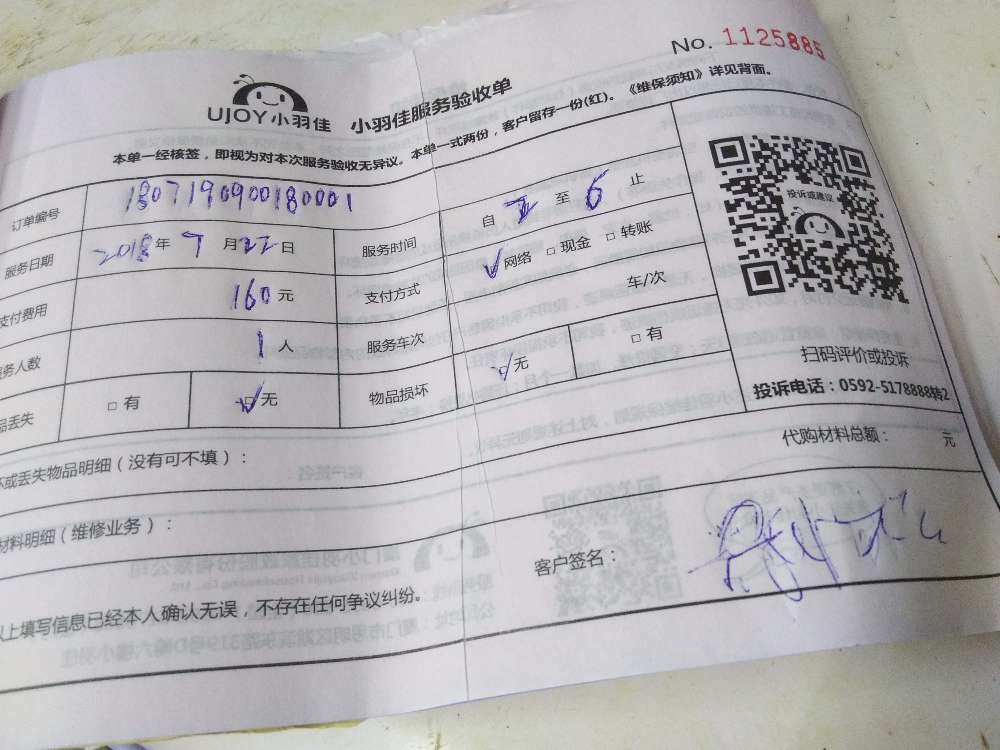 No. 1125885
UJOY小羽佳 小羽佳服务验收单
本单一经核签，即视为对本次服务验收无异议。本单一式两份，客户留存一份(红)。《维保须知》详见背面。
订单编号 1807190900180001
服务日期 2018年7月22日 服务时间 自 2 至 6 止
支付费用 160元 支付方式 网络 □现金 □转账
务人数 1人 服务车次 车/次
品丢失 □有 □无 物品损坏 □无 □有
投诉或建议
扫码评价或投诉
投诉电话：0592-5178888转2
坏或丢失物品明细（没有可不填）： 代购材料总额： 元
材料明细（维修业务）：
客户签名：
以上填写信息已经本人确认无误，不存在任何争议纠纷。